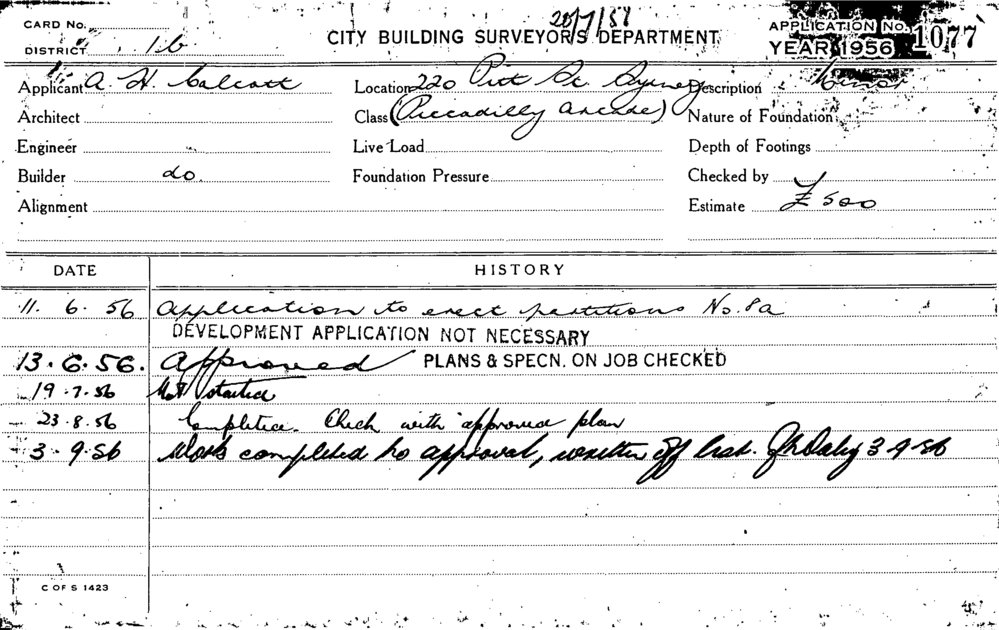 CARD No.
20/7/51
CITY BUILDING SURVEYOR'S DEPARTMENT
APPLICATION No. 1077
YEAR 1956
DISTRICT 1b
Applicant A. H. Calcott
Location 220 Pitt St. Sydney
Description Minor
Architect
Class (Piccadilly Arcade)
Nature of Foundation
Engineer
Live Load
Depth of Footings
Builder do.
Foundation Pressure
Checked by
Alignment
Estimate £500
DATE HISTORY
11. 6. 56 Application to erect partitions No. 8a
DEVELOPMENT APPLICATION NOT NECESSARY
13.6.56. Approved PLANS & SPECN. ON JOB CHECKED
19.7.56 Not started
23.8.56 Completed. Check with approved plan
3.9.56 Work completed to approval, written off list. 3-9-56
C OF S 1423